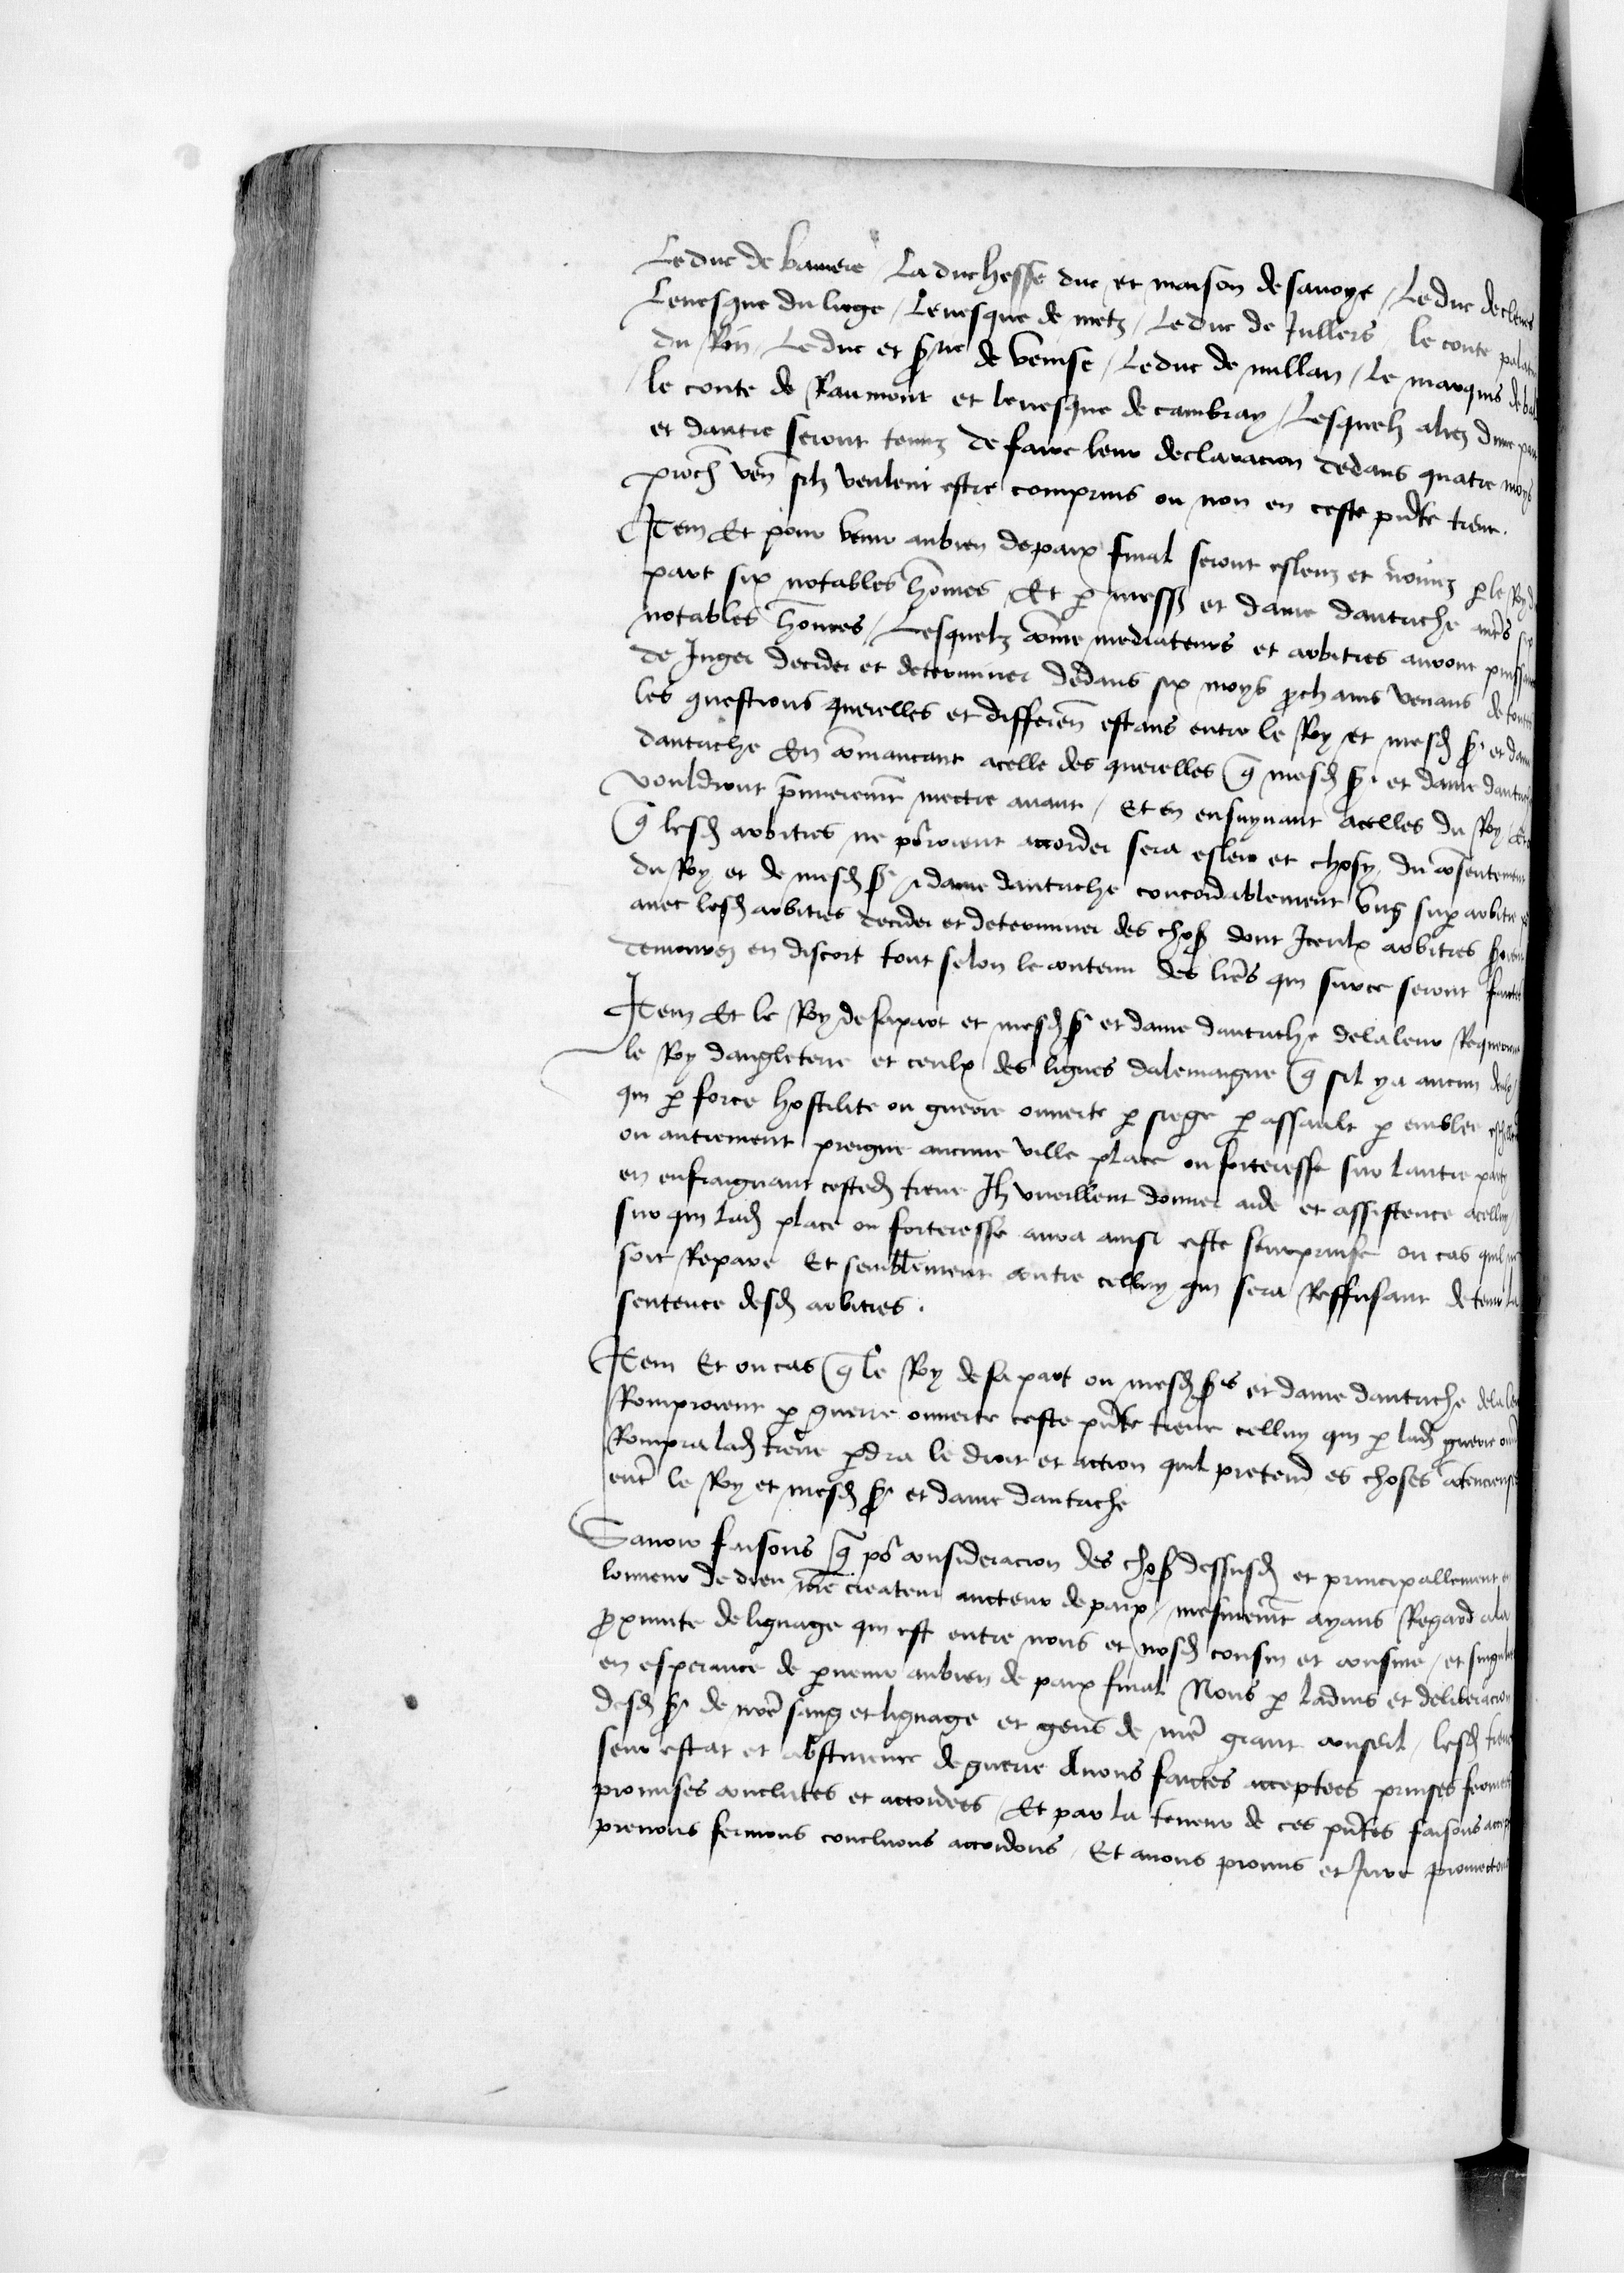 Le duc de baviere / La duchesse duc et maison de savoye / Le duc de cleves
Levesque du liege / Levesque de metz / Le duc de Jullers le conte palatin
du Rin / Le duc et s̃rie de Venise / Le duc de millan / Le marquis de
le conte de Raumont et levesque de cambray / Lesquelz aliez dune part
et dautre seront tenuz de faire leur declaracion dedans quatre moys
proch̃ ven̄ silz veulent estre comprins ou non en ceste p̃nte treve.
Item Et pour venir au bien de paix final seront esleuz et nõmez p le Roy
part six notables hõmes Et p mess̃ et dame dautriche aut̃s six
notables hõmes / Lesquelz cõme mediateurs et arbitres auront puissance
de Juger decider et determiner dedans six moys p̃chains venans de toutes
les questions querelles et differen̄ estans entre le Roy et mesd̃ s̃r et dame
dautriche En cõmancant a celle des querelles q̃ mesd̃ s̃r et dame dautriche
vouldront p̃mierem̃t mectre avant / Et en ensuyvant a celles du Roy /
q̃ lesd̃ arbitres ne põrroient accorder sera esleu et choisy du cõsentement
du Roy et de mesd̃ s̃r et dame dautriche concordablement ung supарbitre
avec lesd̃ arbitres decider et determiner des chos̃ dont Iceulx arbitres seroient
demourez en discort tout selon le contenu des lr̃es qui sur ce seront faictes
Item Et le Roy de sa part et mesd̃ s̃r et dame dautriche de la leur Requerront
le Roy dangleterre et ceulx des ligues dalemaigne q̃ sil y a aucun deulx
qui p force hostilite ou guerre ouverte p siege p assault p emblee
ou autrement preigne aucune ville place ou forteresse sur lautre party
en enfraignant cested̃ treve Ilz vueillent donner aide et assistence a celluy
sur qui lad̃ place ou forteresse aura ainsi este seurprinse ou cas quil ne
soit Repare Et semblem̃ent contre celluy qui sera Reffusant de tenir la
sentence desd̃ arbitres.
Item Et ou cas q̃ le Roy de sa part ou mesd̃ s̃rs et dame dautriche de la leur
Romproient p guerre ouverte ceste p̃nte treve celluy qui p lad̃ guerre
Rompra lad̃ treve pdra le droit et action quil pretend es choses cõtencieuses
ent̃ le Roy et mesd̃ s̃r et dame dautriche
Savoir faisons q̃ põ consideracion des chos̃ dessusd̃ et principallement
lonneur de dieu nr̃e createur aucteur de paix / mesmem̃t ayans Regard a la
p̃ximite de lignage qui est entre nous et nosd̃ cousin et cousine / et
en esperance de pvenir au bien de paix final Nous p ladvis et deliberacion
desd̃ s̃rs de nr̃e sang et lignage et gens de nr̃e grant conseil / lesd̃ treve
seur estat et abstinence de guerre Avons faictes acceptees prinses
promises conclutes et accordees / Et par la teneur de ces p̃ntes faisons
prenons fermons concluons accordons / Et avons promis et Jure promectons